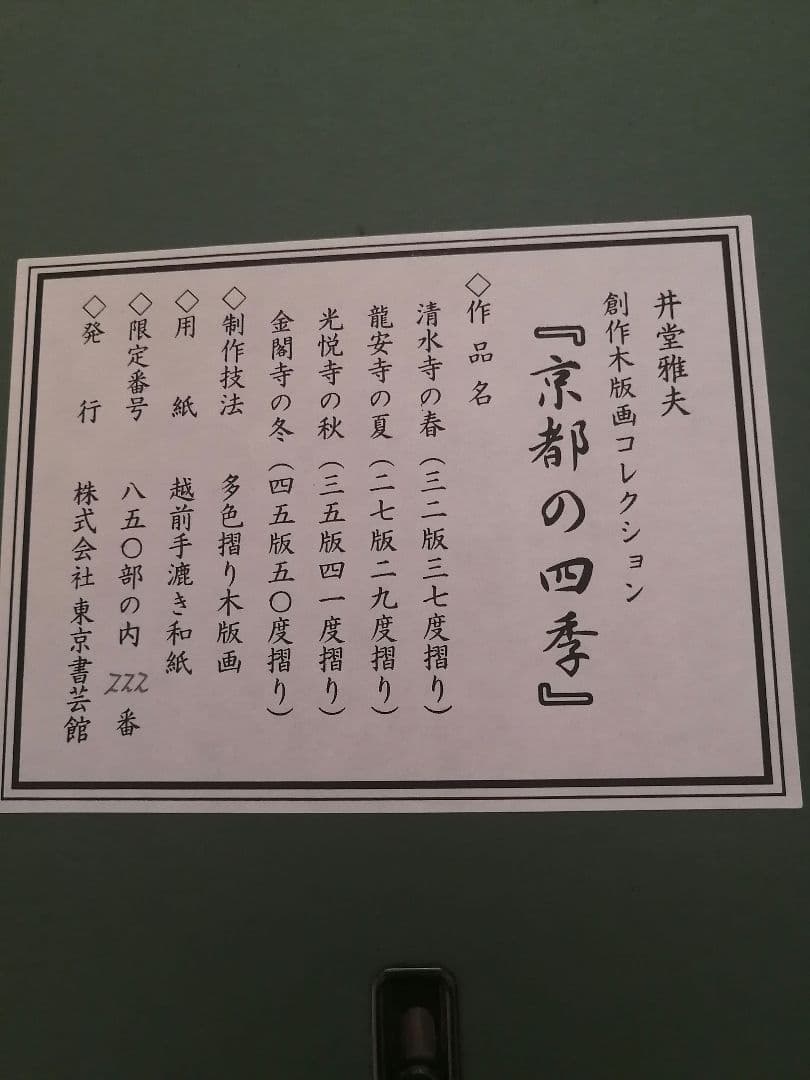 井堂雅夫
創作木版画コレクション
『京都の四季』
◇作品名
清水寺の春（三二版三七度摺り）
龍安寺の夏（二七版二九度摺り）
光悦寺の秋（三五版四一度摺り）
金閣寺の冬（四五版五〇度摺り）
◇制作技法　多色摺り木版画
◇用紙　越前手漉き和紙
◇限定番号　八五〇部の内 222 番
◇発行　株式会社 東京書芸館